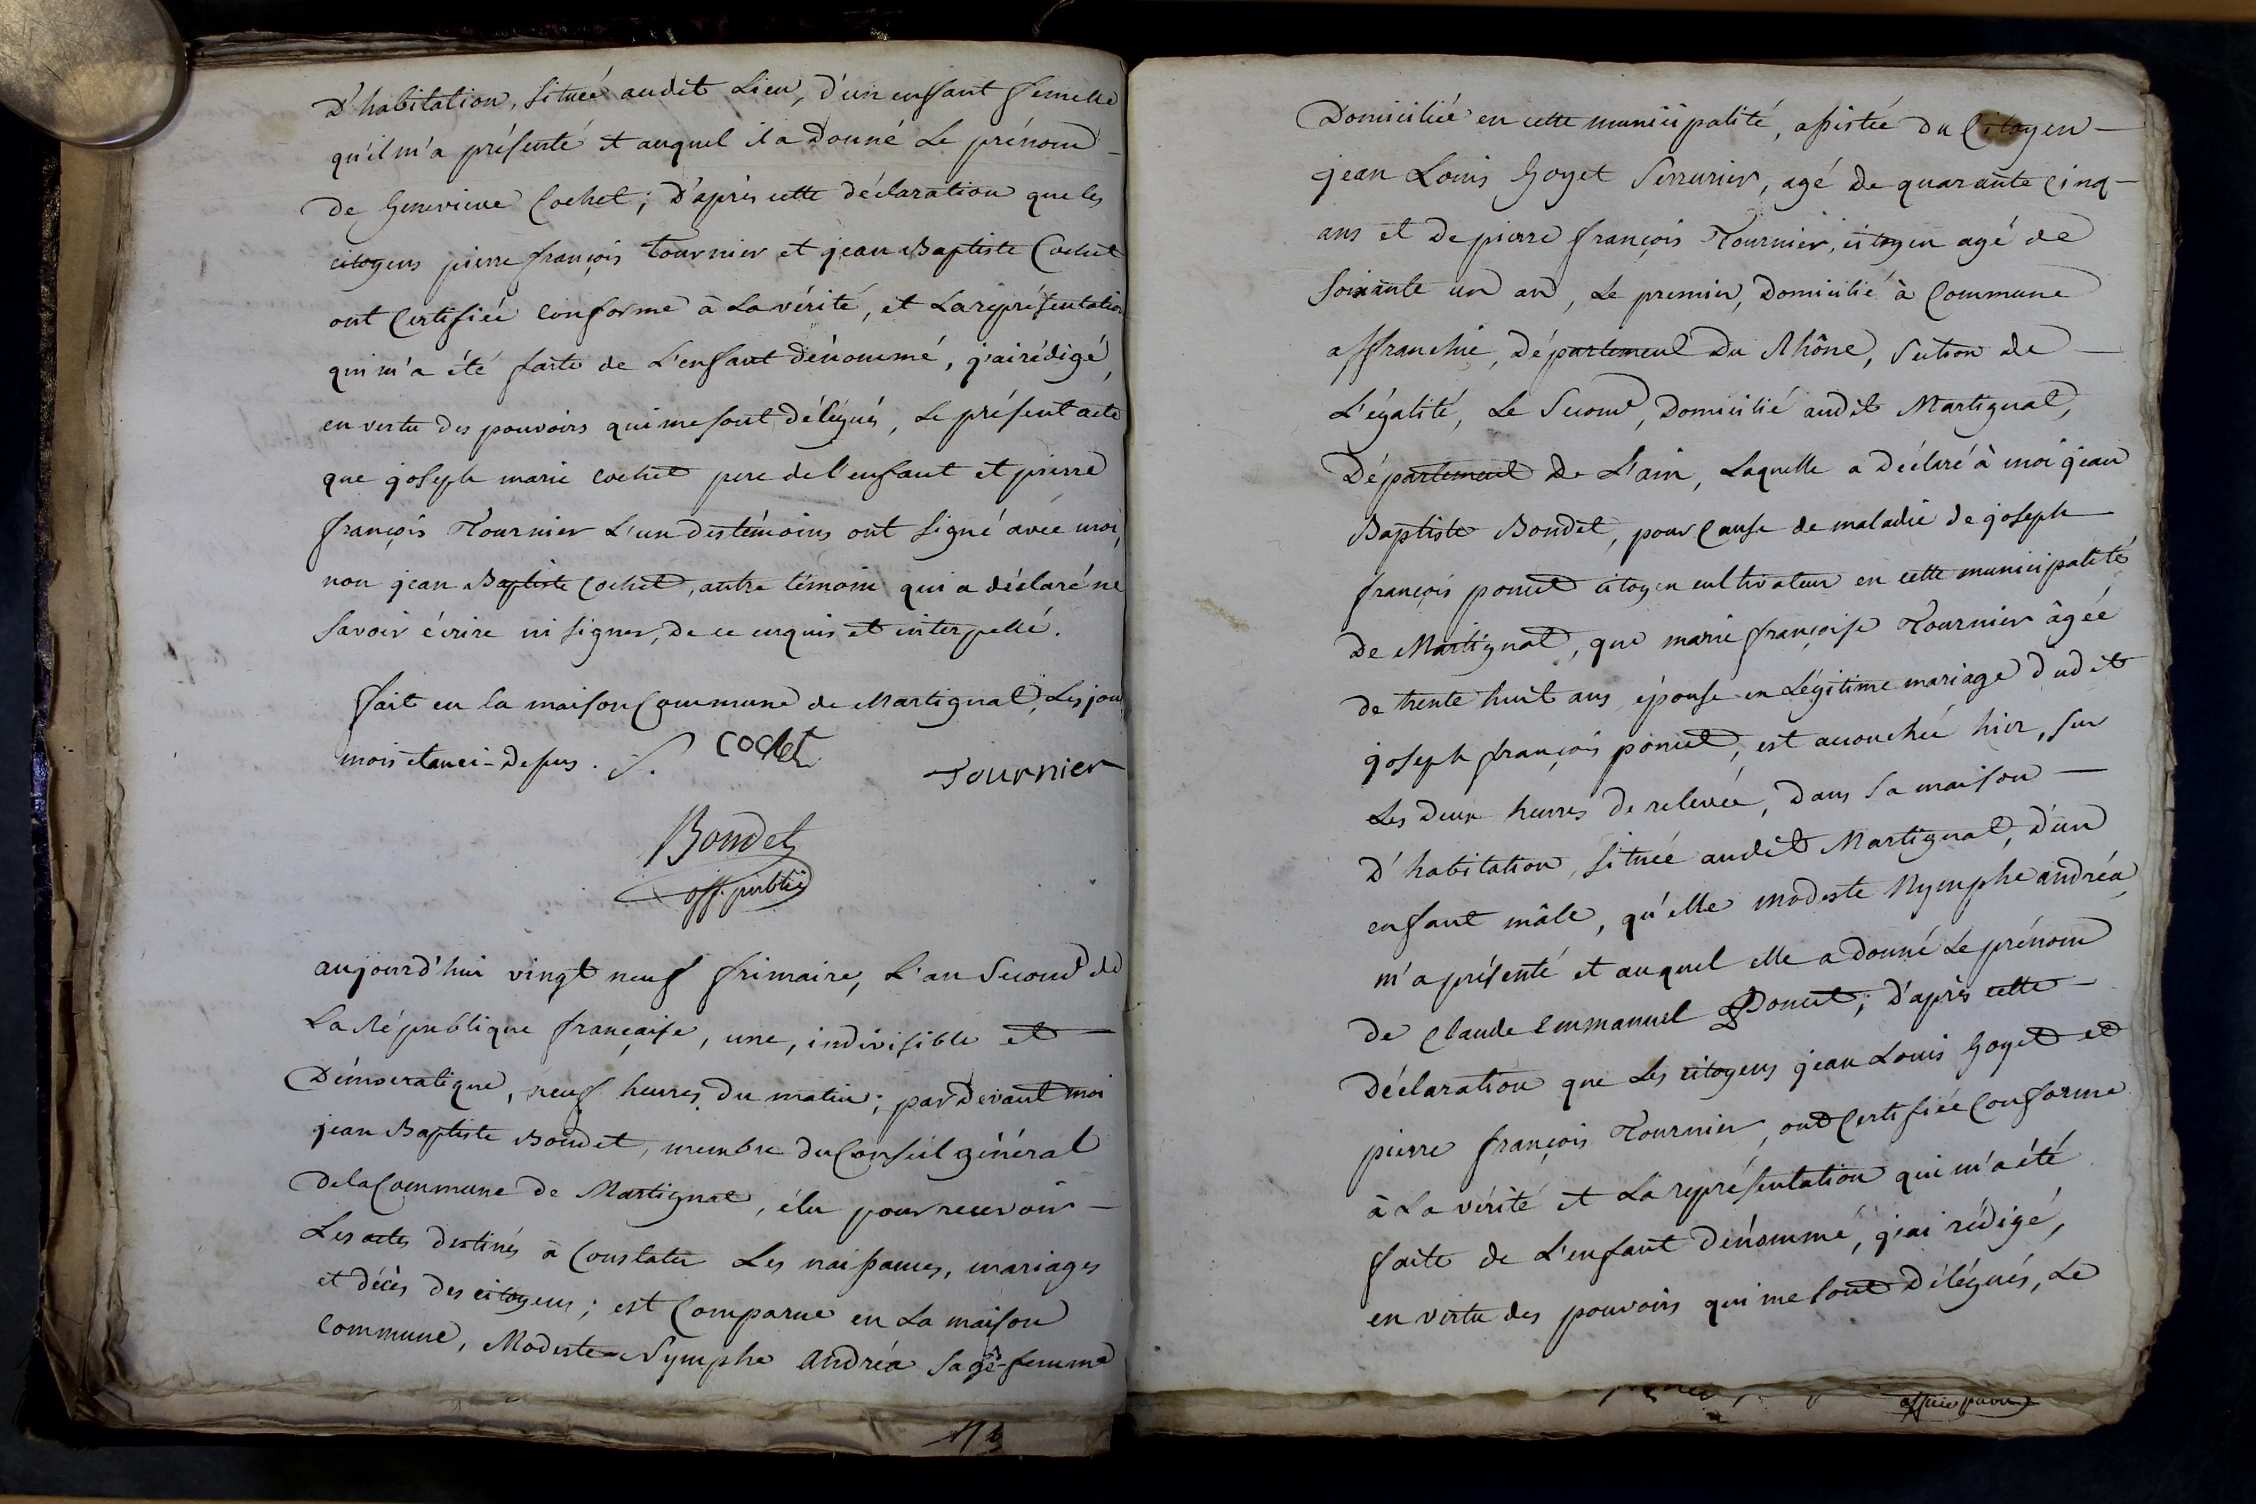 D'habitation, située audit Lieu, d'un enfant femelle
qu'il m'a présenté et auquel il a Donné Le prénom
de Genevieve Cochet ; D'après cette déclaration que les
citoyens pierre françois tournier et jean Baptiste Cochet
ont Certifiée conforme à La vérité, et La représentation
qui m'a été faite de L'enfant dénommé, j'ai rédigé,
en vertu des pouvoirs qui me sont Délégués, Le présent acte
que joseph marie cochet pere de l'enfant et pierre
françois Tournier L'un des témoins ont signé avec moi,
non jean Baptiste Cochet, autre témoin qui a déclaré ne
Savoir écrire ni signer, de ce enquis et interpellé.
fait en la maison Commune de Martignat, Les jour
mois et an ci-dessus. J. cochet
Tournier
Bondet
off. public
aujourd'hui vingt neuf frimaire, L'an Second de
La République française, une, indivisible et —
Démocratique, neuf heures du matin ; par Devant moi
jean Baptiste Bondet, membre du Conseil général
de la Commune de Martignat, élu pour recevoir —
Les actes destinés à Constater Les naissances, mariages
et décès des citoyens ; est Comparue en La maison
Commune, Modeste Nymphe Andréa Sage-femme
Domiciliée en cette municipalité, assistée du Citoyen —
jean Louis Goyet Serrurier, agé de quarante Cinq —
ans et de pierre françois Tournier, citoyen agé de
Soixante un an, Le premier, Domicilié à Commune
affranchie, Département Du Rhône, Section de —
L'égalité, Le Second, Domicilié audit Martignat,
Département de L'ain, Laquelle a Déclaré à moi jean
Baptiste Bondet, pour Cause de maladie de joseph —
françois poncet citoyen cultivateur en cette municipalité
de Martignat, que marie françoise Tournier âgée
de trente huit ans épouse en Légitime mariage dudit
joseph françois poncet, est accouchée hier, sur
Les Deux heures de relevée, Dans Sa maison —
D'habitation, située audit Martignat, D'un
enfant mâle, qu'elle modeste Nymphe andréa
m'a présenté et auquel elle a donné Le prénom
de Claude Emmanuel Poncet ; D'après cette —
Déclaration que Les citoyens jean Louis Goyet et
pierre françois Tournier, ont Certifiée Conforme
à La vérité et La représentation qui m'a été
faite de L'enfant Dénommé, j'ai rédigé,
en vertu des pouvoirs qui me sont Délégués, Le